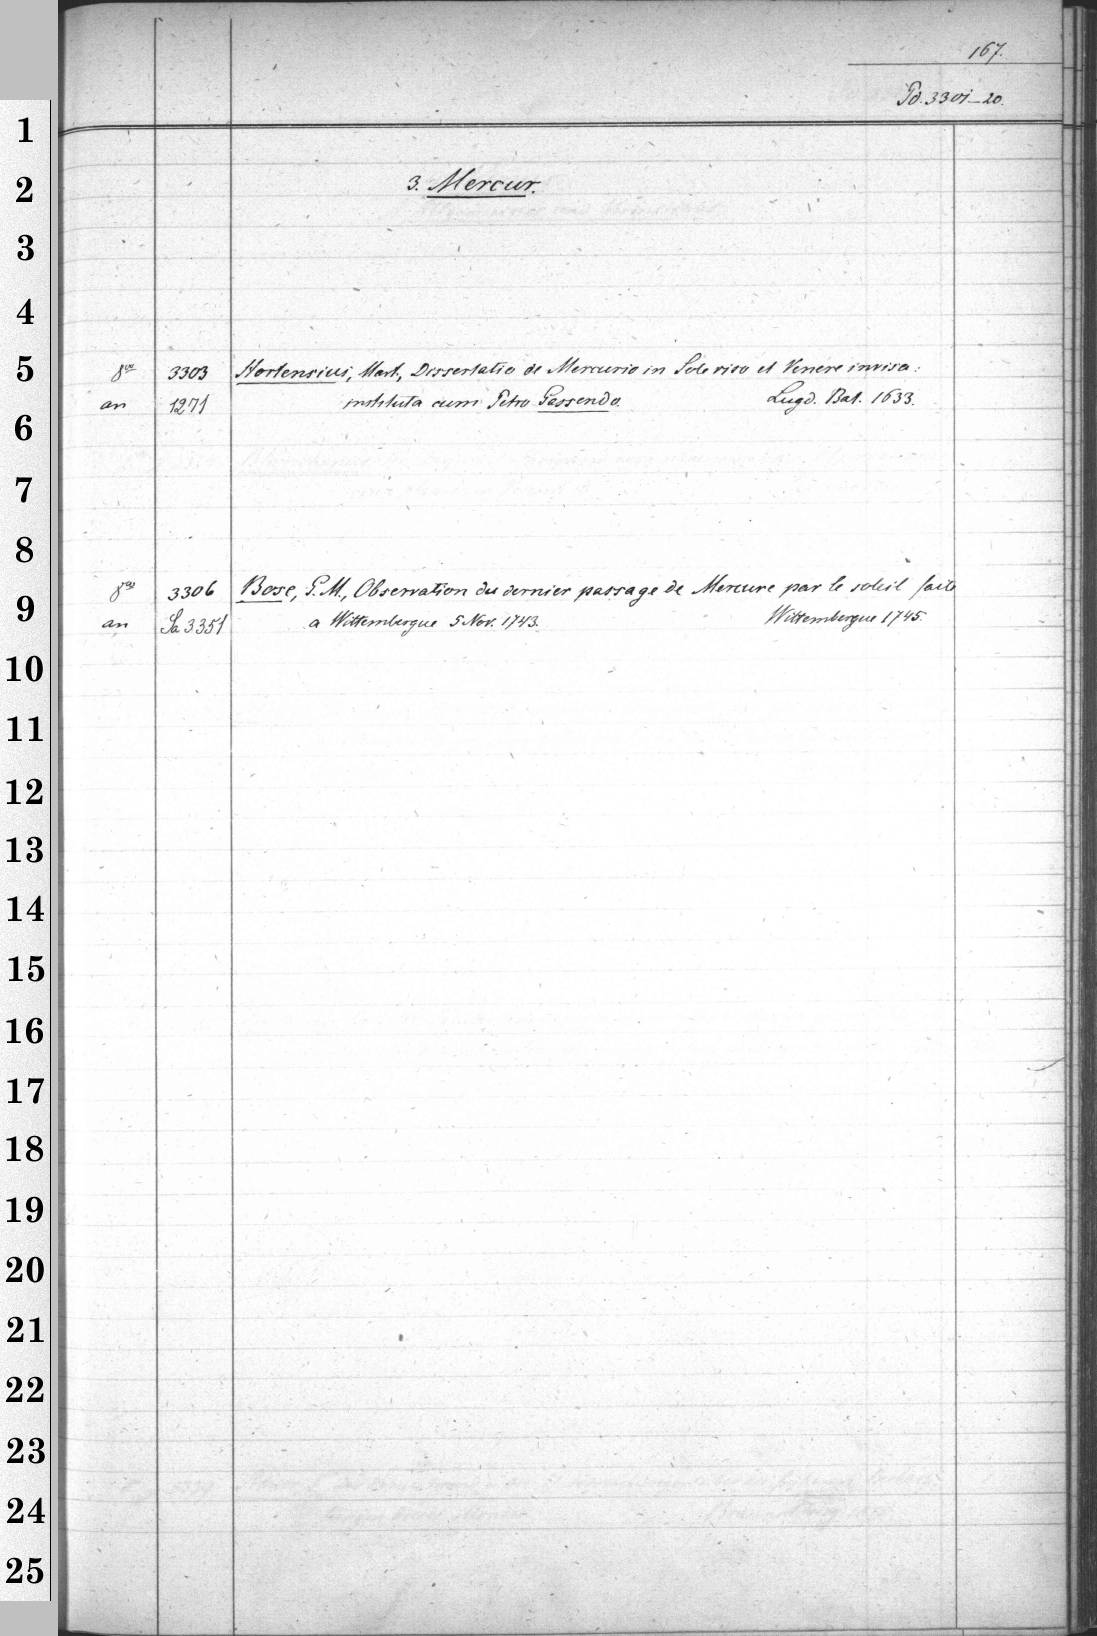 167.
Pd. 3301-20.
1
2
3. Mercur.
3
4
5
8vo 3303 Hortensius, Mart., Dissertatio de Mercurio in Sole viso et Venere invisa:
an 1271 instituta cum Petro Gassendo. Lugd. Bat. 1633.
6
7
8
8vo 3306 Bose, G. M., Observation du dernier passage de Mercure par le soleil faite
9
an Sa 3351 a Wittembergue 5 Nov. 1743. Wittembergue 1745.
10
11
12
13
14
15
16
17
18
19
20
21
22
23
24
25